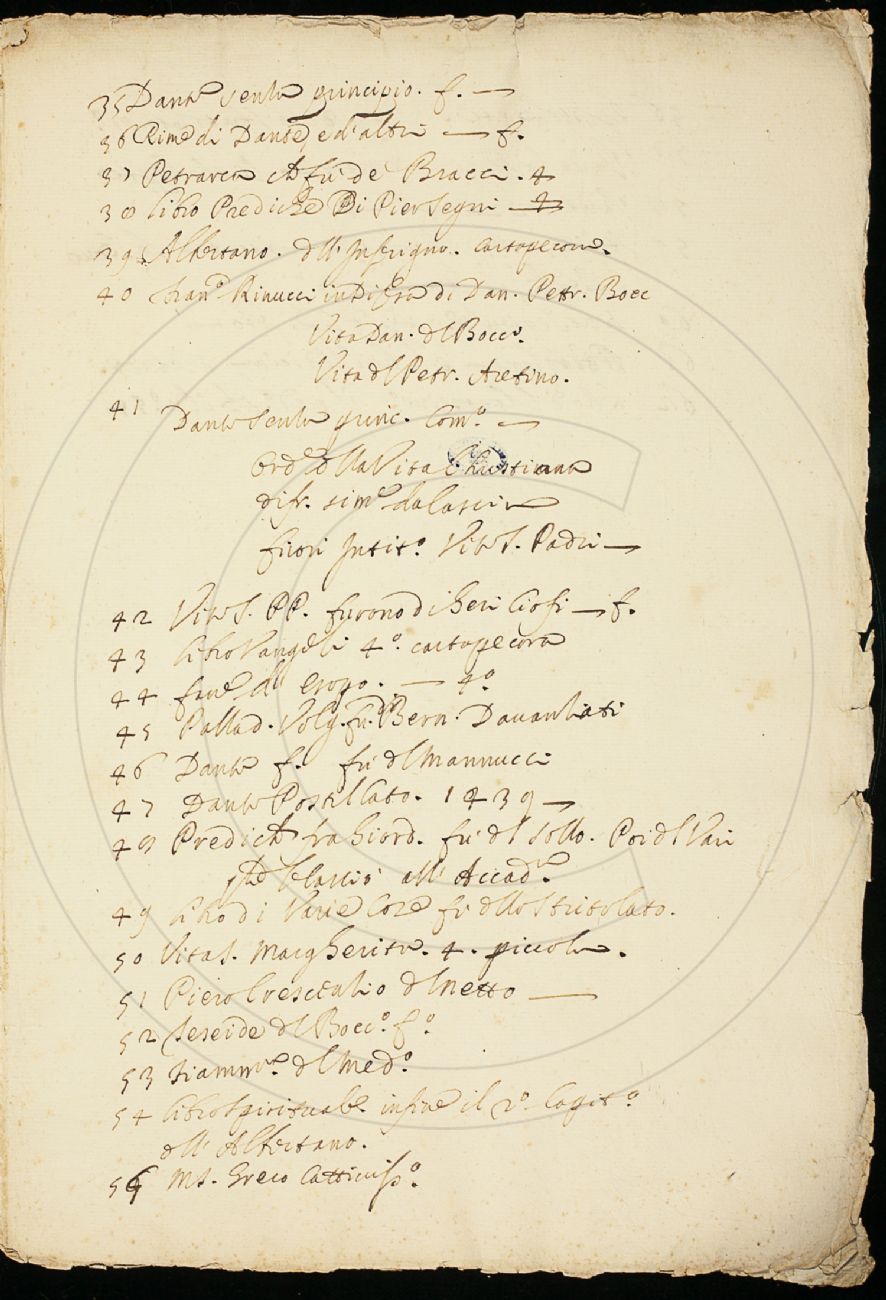 35 Dante senza principio. f. —
36 Rime di Dante, e d'altri — f.
37 Petrarca che fu de' Bracci. 4
38 Libro Prediche Di Pier Segni — 4
39 Albertano. dll' Inferigno. cartapecora.
40 Fran.º Rinucci in Difesa di Dan. Petr. Bocc
Vita Dan. dl Bocc.º
Vita dl Petr. Aretino.
41 Dante senza princ. Com.º —
Ord.e dlla Vita Christiana
di fr. Sim.e da Cascia
fuori Intit.º Vite S. Padri —
42 Vite S. PP. furono di Neri — f.
43 Libro Vangeli 4.º cartapecora
44 d' Esopo. — 4.º
45 Pallad. Volg. fu. Bern. Davanzati
46 Dante f. fu dl Mannucci
47 Dante Postillato. 1439 —
48 Prediche fra Giord. fu dl Sollo. Poi dl Vai
che lasciò all' Accad.a
49 Libro di Varie Cose fu dllo Stritolato.
50 Vita S. Margherita. 4. piccola.
51 Piero Crescenzio dl Netto —
52 Teseide dl Bocc.º f.º
53 Fiamm.a dl Med.º
54 Libro Spirituale. in fine il 2.º Capit.º
dll' Albertano.
55 MS. Greco Cattiviss.º